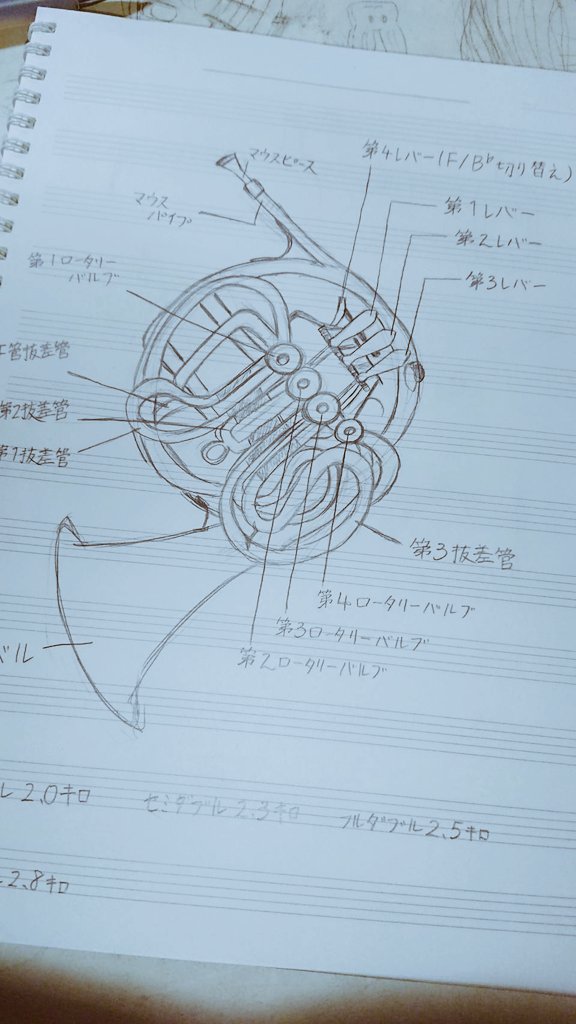 マウスピース
第4レバー(F/B♭切り替え)
マウス
パイプ
第1レバー
第2レバー
第3レバー
第1ロータリー
バルブ
管抜差管
第2抜差管
第1抜差管
第3抜差管
第4ロータリーバルブ
第3ロータリーバルブ
第2ロータリーバルブ
ベル
ル2.0キロ
セミダブル2.3キロ
フルダブル2.5キロ
2.8キロ